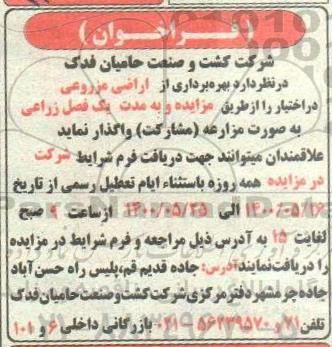 (فراخوان)
شرکت کشت و صنعت حامیان فدک
در نظر دارد بهره برداری از اراضی مزروعی
در اختیار را از طریق مزایده و به مدت یک فصل زراعی
به صورت مزارعه (مشارکت) واگذار نماید
علاقمندان میتوانند جهت دریافت فرم شرایط شرکت
در مزایده همه روزه باستثناء ایام تعطیل رسمی از تاریخ
۱۴۰۰/۰۵/۱۶ الی ۱۴۰۰/۰۵/۲۵ از ساعت ۹ صبح
لغایت ۱۵ به آدرس ذیل مراجعه و فرم شرایط در مزایده
را دریافت نمایند آدرس: جاده قدیم قم، پلیس راه حسن آباد
جاده چرمشهر دفتر مرکزی شرکت کشت و صنعت حامیان فدک
تلفن ۷۱ و ۵۶۲۳۹۵۷۰-۰۲۱ بازرگانی داخلی ۶ و ۱۰۱